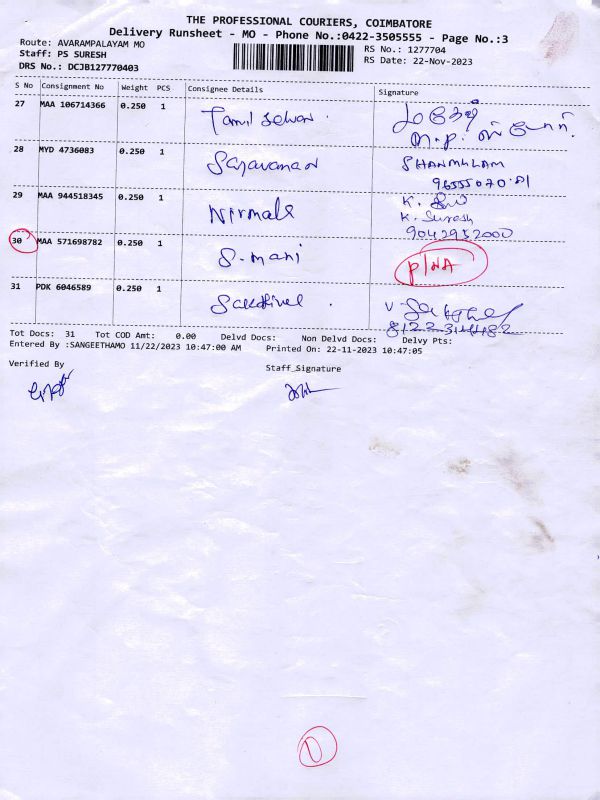 THE PROFESSIONAL COURIERS, COIMBATORE
Delivery Runsheet - MO - Phone No.:0422-3505555 - Page No.:3
Route: AVARAMPALAYAM MO
RS No.: 1277704
Staff: PS SURESH
RS Date: 22-Nov-2023
DRS No.: DCJB127770403
S No Consignment No Weight PCS Consignee Details Signature
27 MAA 106714366 0.250 1 Tamil selvan
28 MYD 4736083 0.250 1 Saravanan SHANMUGAM
29 MAA 944518345 0.250 1 Nirmala K.
K. Suresh
9042952000
30 MAA 571698782 0.250 1 S. mani P/NA
31 PDK 6046589 0.250 1 Sakthivel
Tot Docs: 31 Tot COD Amt: 0.00 Delvd Docs: Non Delvd Docs: Delvy Pts:
Entered By :SANGEETHAMO 11/22/2023 10:47:00 AM Printed On: 22-11-2023 10:47:05
Verified By Staff_Signature